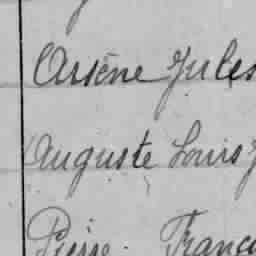 Arsène Jules
Auguste Louis
Pierre. Franç